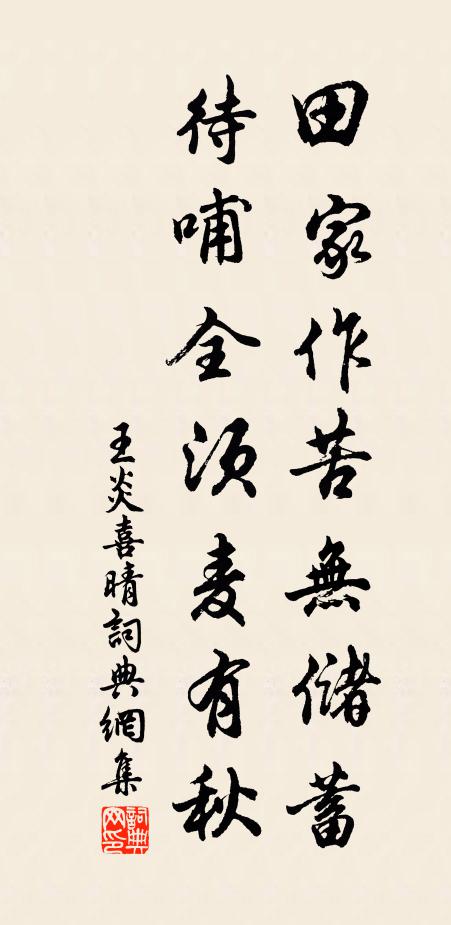 田家作苦無儲蓄
待哺全須麦有秋
王炎喜晴詞典網集
詞典
网印